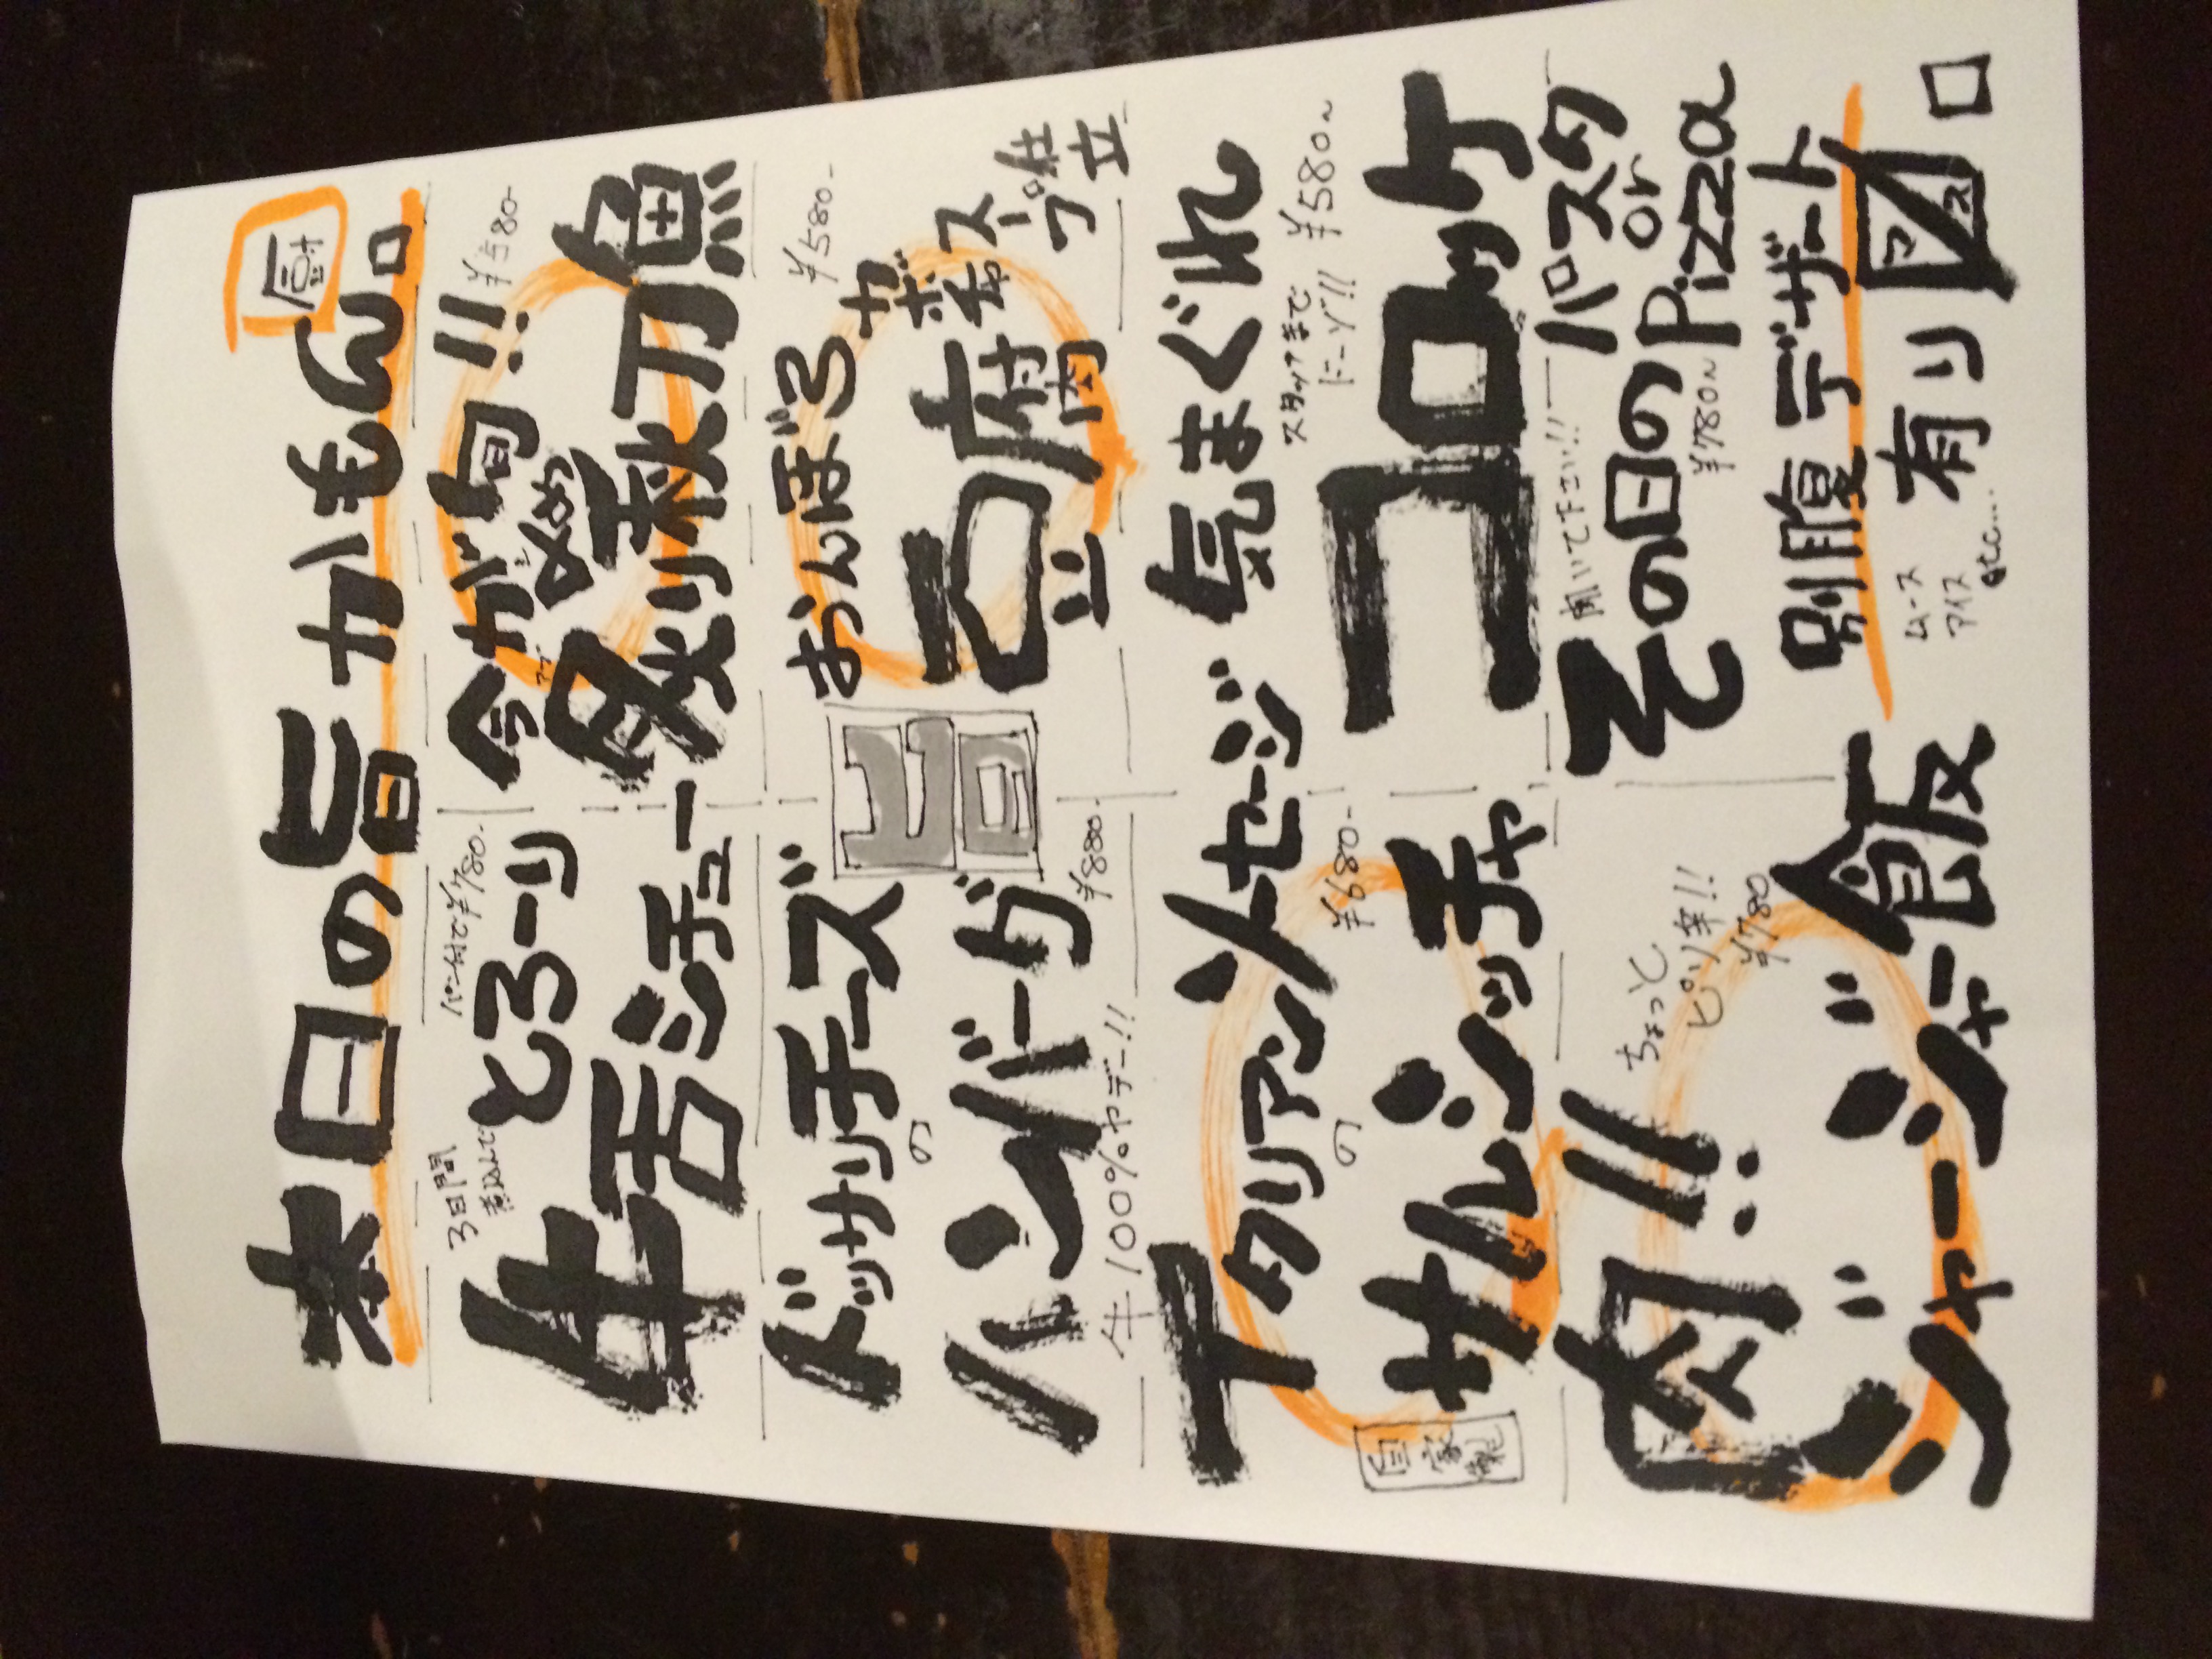 本日の旨カもん。
3日間
煮込んで
パン付で¥780-
とろーり
牛舌シチュー
今が旬!!
¥580-
炙り秋刀魚
ドッサリチーズ
の
ハンバーグ
¥880-
牛100%ヤデー!!
旨
おんぼろ
豆腐
¥580-
スープ仕立
イタリアンソーセージ
の
¥680-
サルシッチャ
自家製
気まぐれ
スタッフまで
ドーゾ!!
¥580~
コロッケ
肉!!
ちょっと
ピリ辛!!
¥780
ジャージャー飯
聞いて下さい!!
その日の
パスタ
or
Pizza
¥780~
別腹デザート
有り
ムース
アイス
etc...